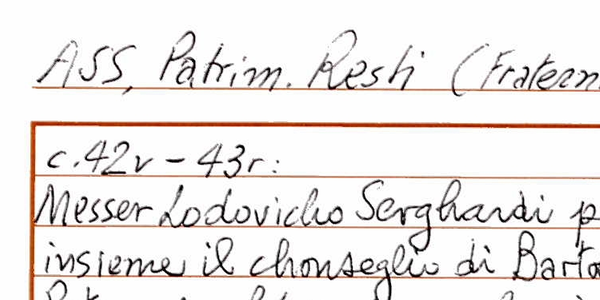 ASS, Patrim. Resti (Fratern
c.42v - 43r:
Messer Lodovicho Serghardi p
insieme il chonseglio di Barto